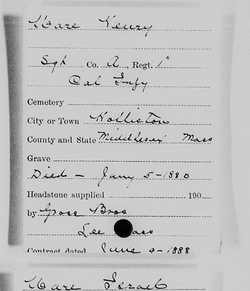 Ware Henry
Sgt Co. A, Regt. 1"
Col Infy
Cemetery
City or Town Holliston
County and State Middlesex Mass
Grave
Died - Jany 5-1880
Headstone supplied 190
by Gross Bros
Lee Mass
Contract dated June 2-1888
Ware Israel